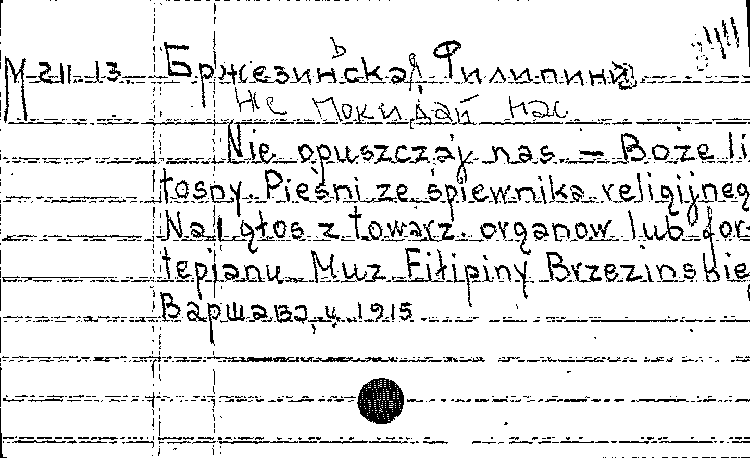 М 211-13. Бржезиньская Филипина
Не покидай нас
Nie opuszczaj nas. – Boże li
tosny. Pieśni ze śpiewnika religijneg
Na 1 głos z towarz. organow lub for-
tepianu Muz Filipiny Brzezinskie
Варшава, ц. 1915.